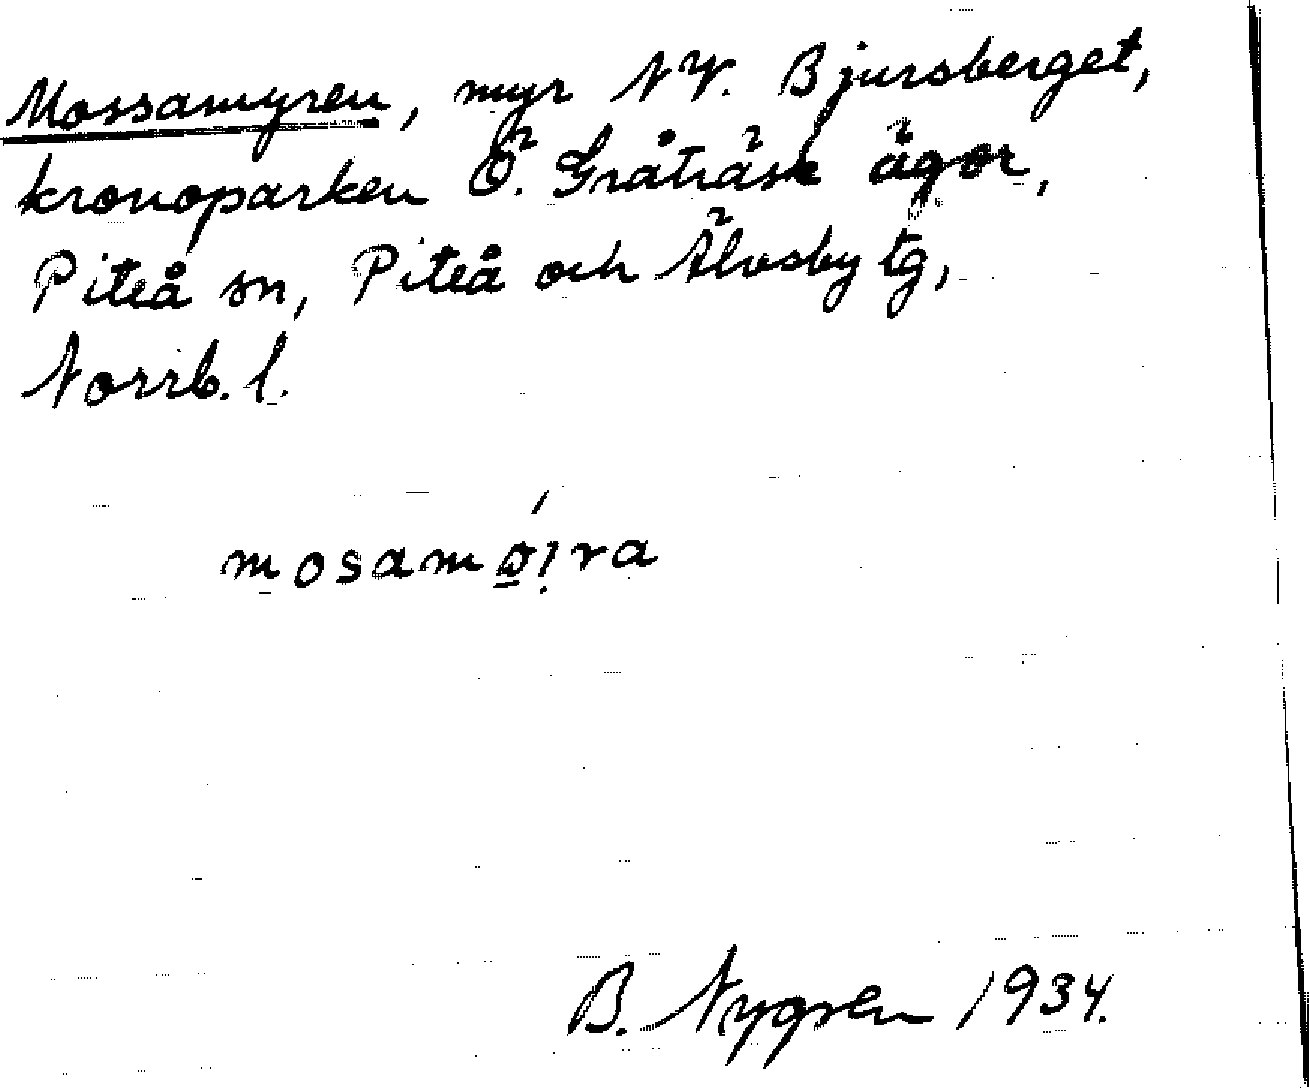 Mossamyren, myr NV. Bjursberget,
kronoparken Ö. Gråträsk ägor,
Piteå sn, Piteå och Älvsby tg,
Norrb. l.
mosamø̲ı̣ra
B. Nygren 1934.